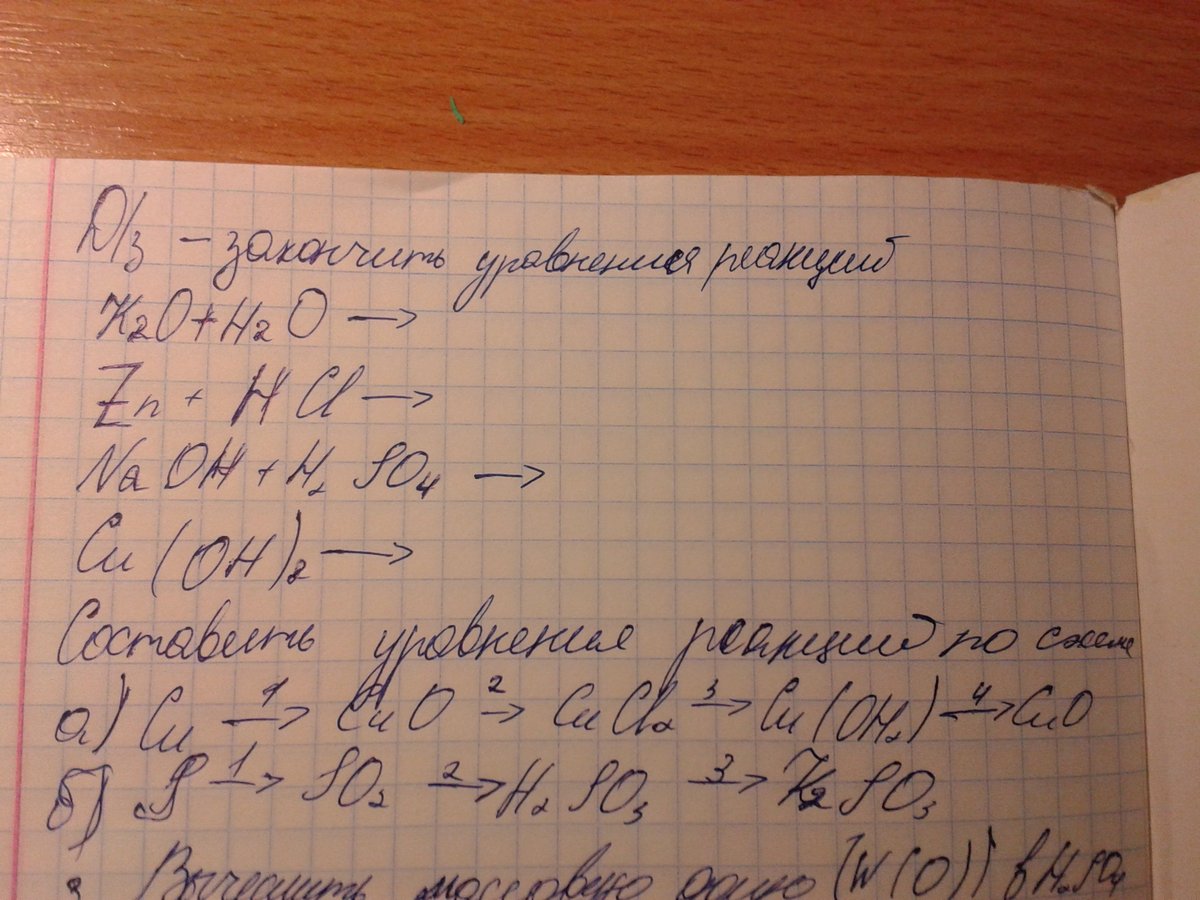 Д/з – закончить уравнения реакций
K₂O + H₂O →
Zn + HCl →
NaOH + H₂SO₄ →
Cu(OH)₂ →
Составить уравнения реакций по схеме
а) Cu →¹ CuO →² CuCl₂ →³ Cu(OH₂) →⁴ CuO
б) S →¹ SO₂ →² H₂SO₃ →³ K₂SO₃
3 Вычислить массовую долю (W(O)) в H₂SO₄